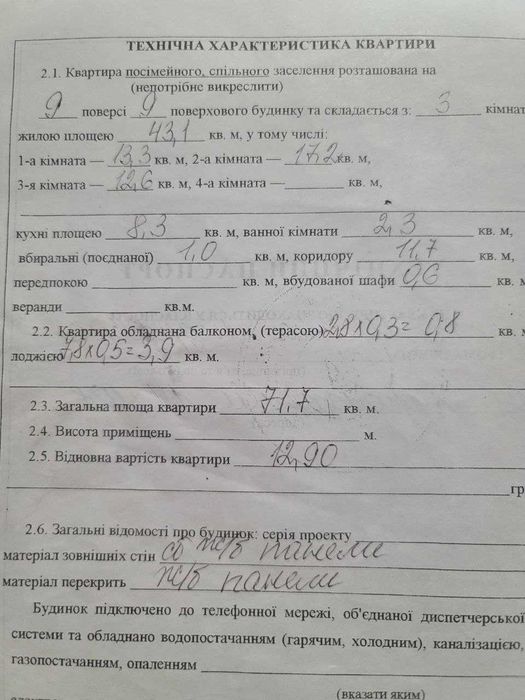 ТЕХНІЧНА ХАРАКТЕРИСТИКА КВАРТИРИ
2.1. Квартира посімейного, спільного заселення розташована на
(непотрібне викреслити)
9 поверсі 9 поверхового будинку та складається з: 3 кімнат
жилою площею 43,1 кв. м, у тому числі:
1-а кімната — 13,3 кв. м, 2-а кімната — 17,2 кв. м,
3-я кімната — 12,6 кв. м, 4-а кімната — кв. м,
кухні площею 8,3 кв. м, ванної кімнати 2,3 кв. м,
вбиральні (поєднаної) 1,0 кв. м, коридору 11,7 кв. м,
передпокою кв. м, вбудованої шафи 0,6 кв. м
веранди кв.м.
2.2. Квартира обладнана балконом, (терасою) 2,8х0,3=0,8 кв.
лоджією 7,8х0,5=3,9 кв. м.
2.3. Загальна площа квартири 71,7 кв. м.
2.4. Висота приміщень м.
2.5. Відновна вартість квартири 12,90
гр
2.6. Загальні відомості про будинок: серія проекту
матеріал зовнішніх стін ж/б панели
матеріал перекрить ж/б панели
Будинок підключено до телефонної мережі, об'єднаної диспетчерської
системи та обладнано водопостачанням (гарячим, холодним), каналізацією,
газопостачанням, опаленням
(вказати яким)